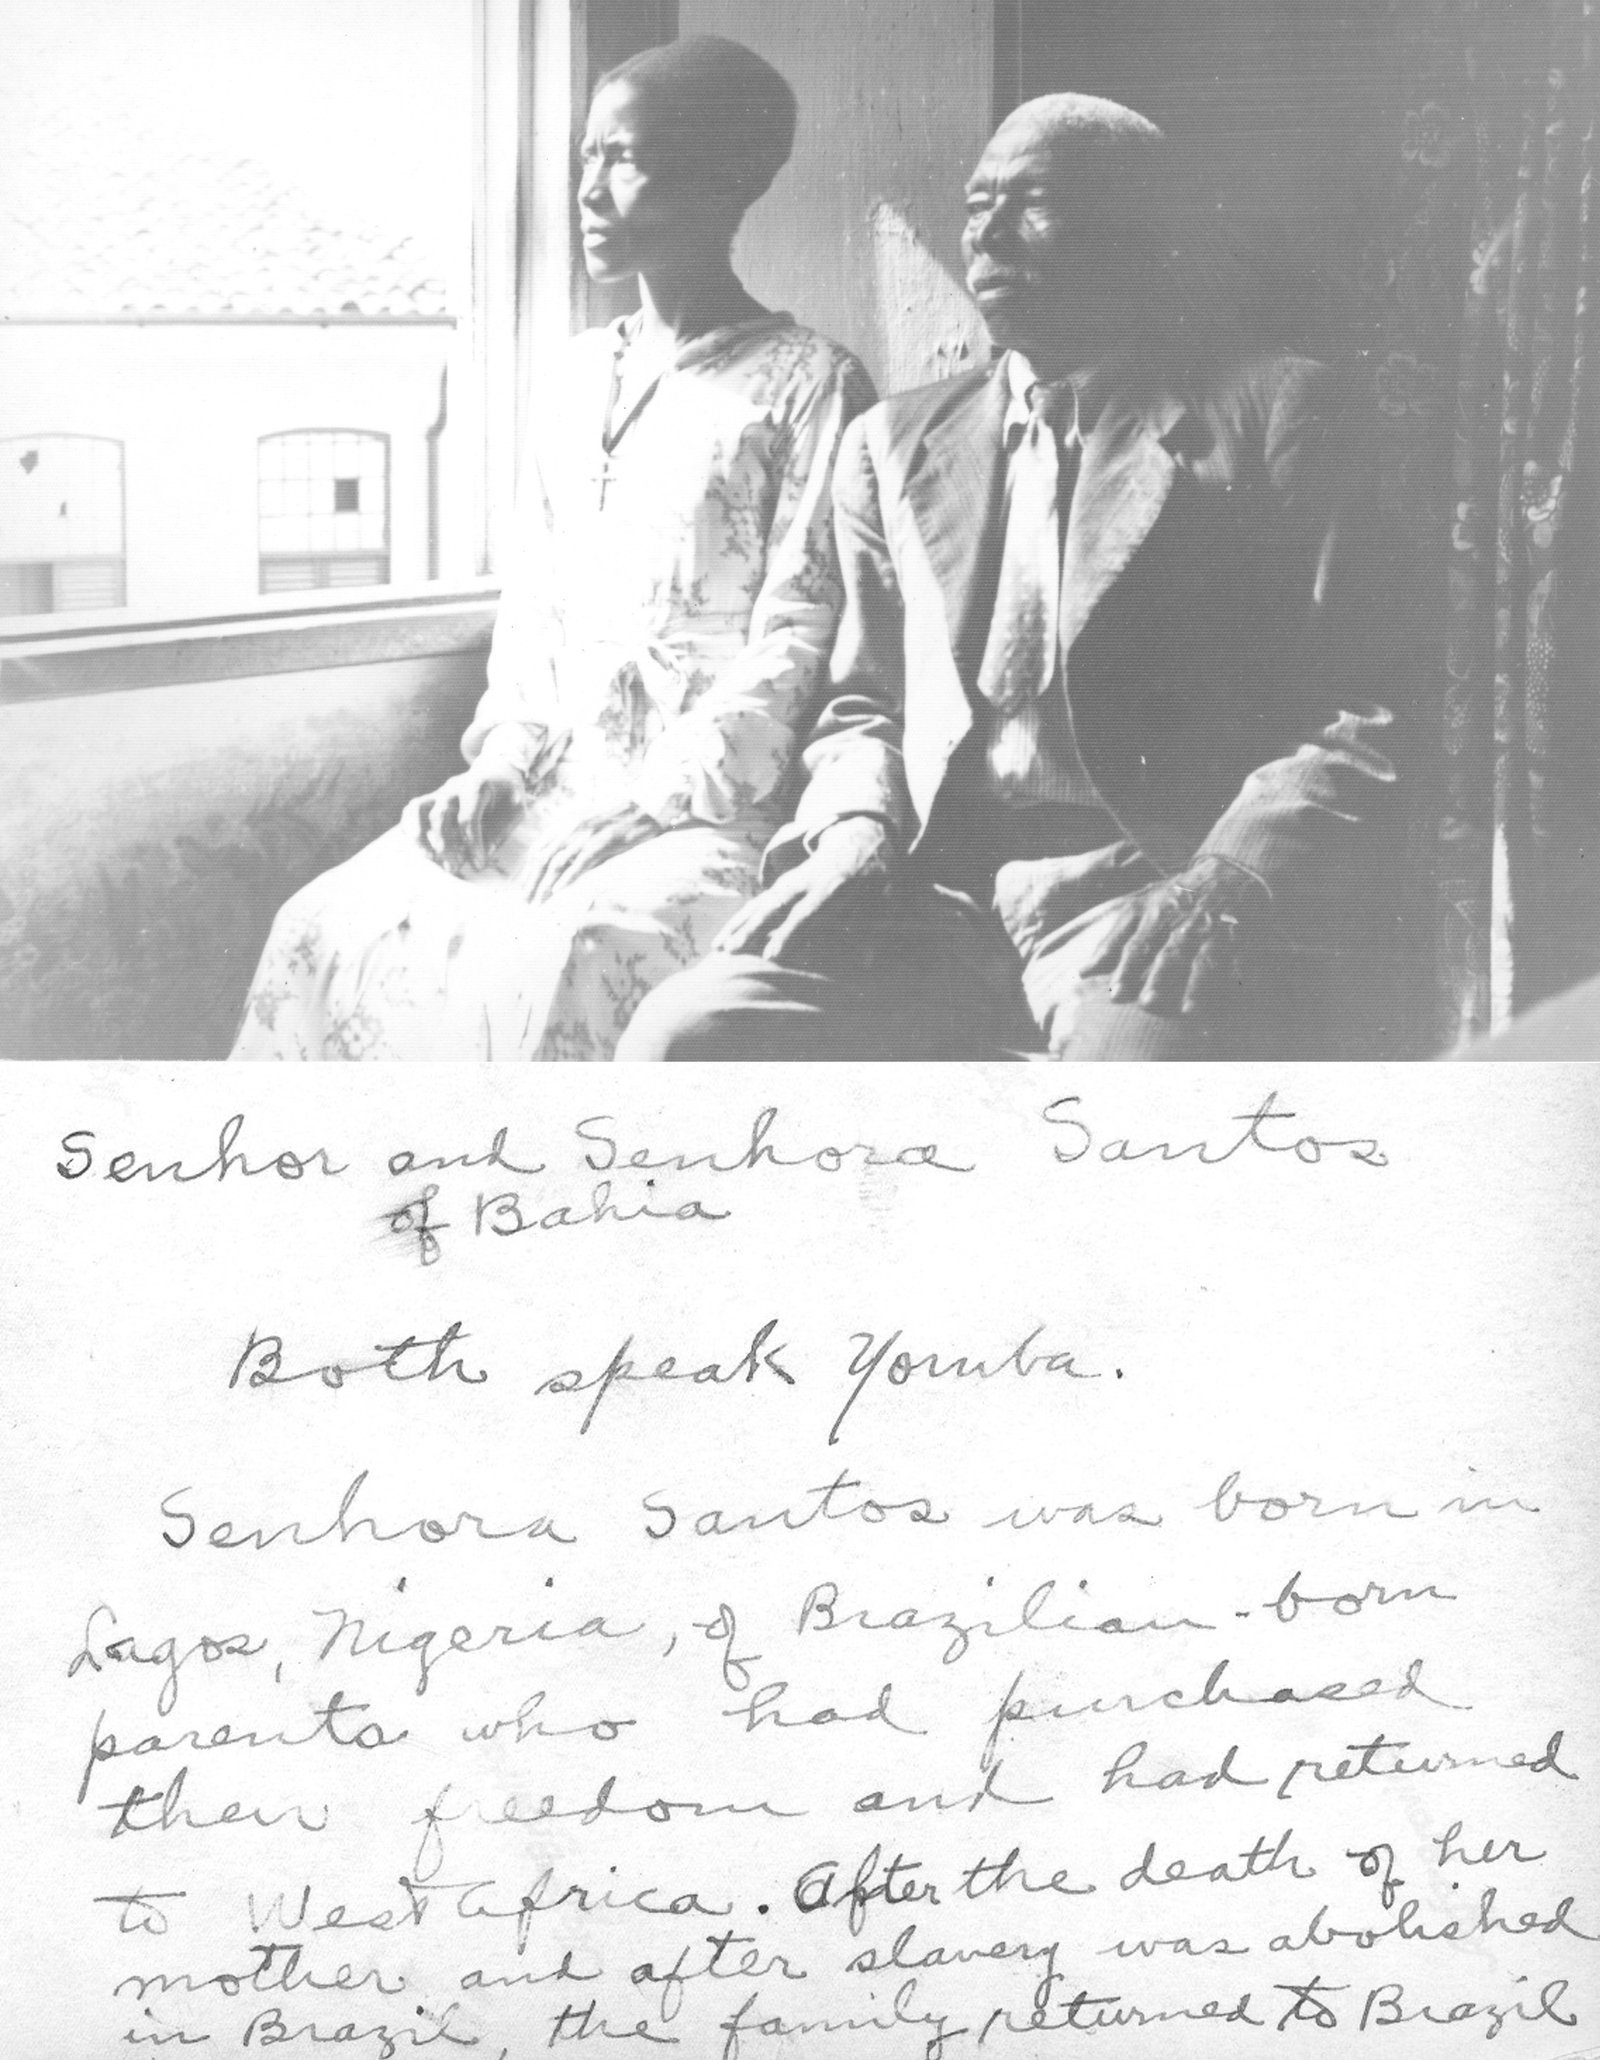 Senhor and Senhora Santos
of Bahia
Both speak Yoruba.
Senhora Santos was born in
Lagos, Nigeria, of Brazilian-born
parents who had purchased
their freedom and had returned
to West Africa. After the death of her
mother and after slavery was abolished
in Brazil, the family returned to Brazil